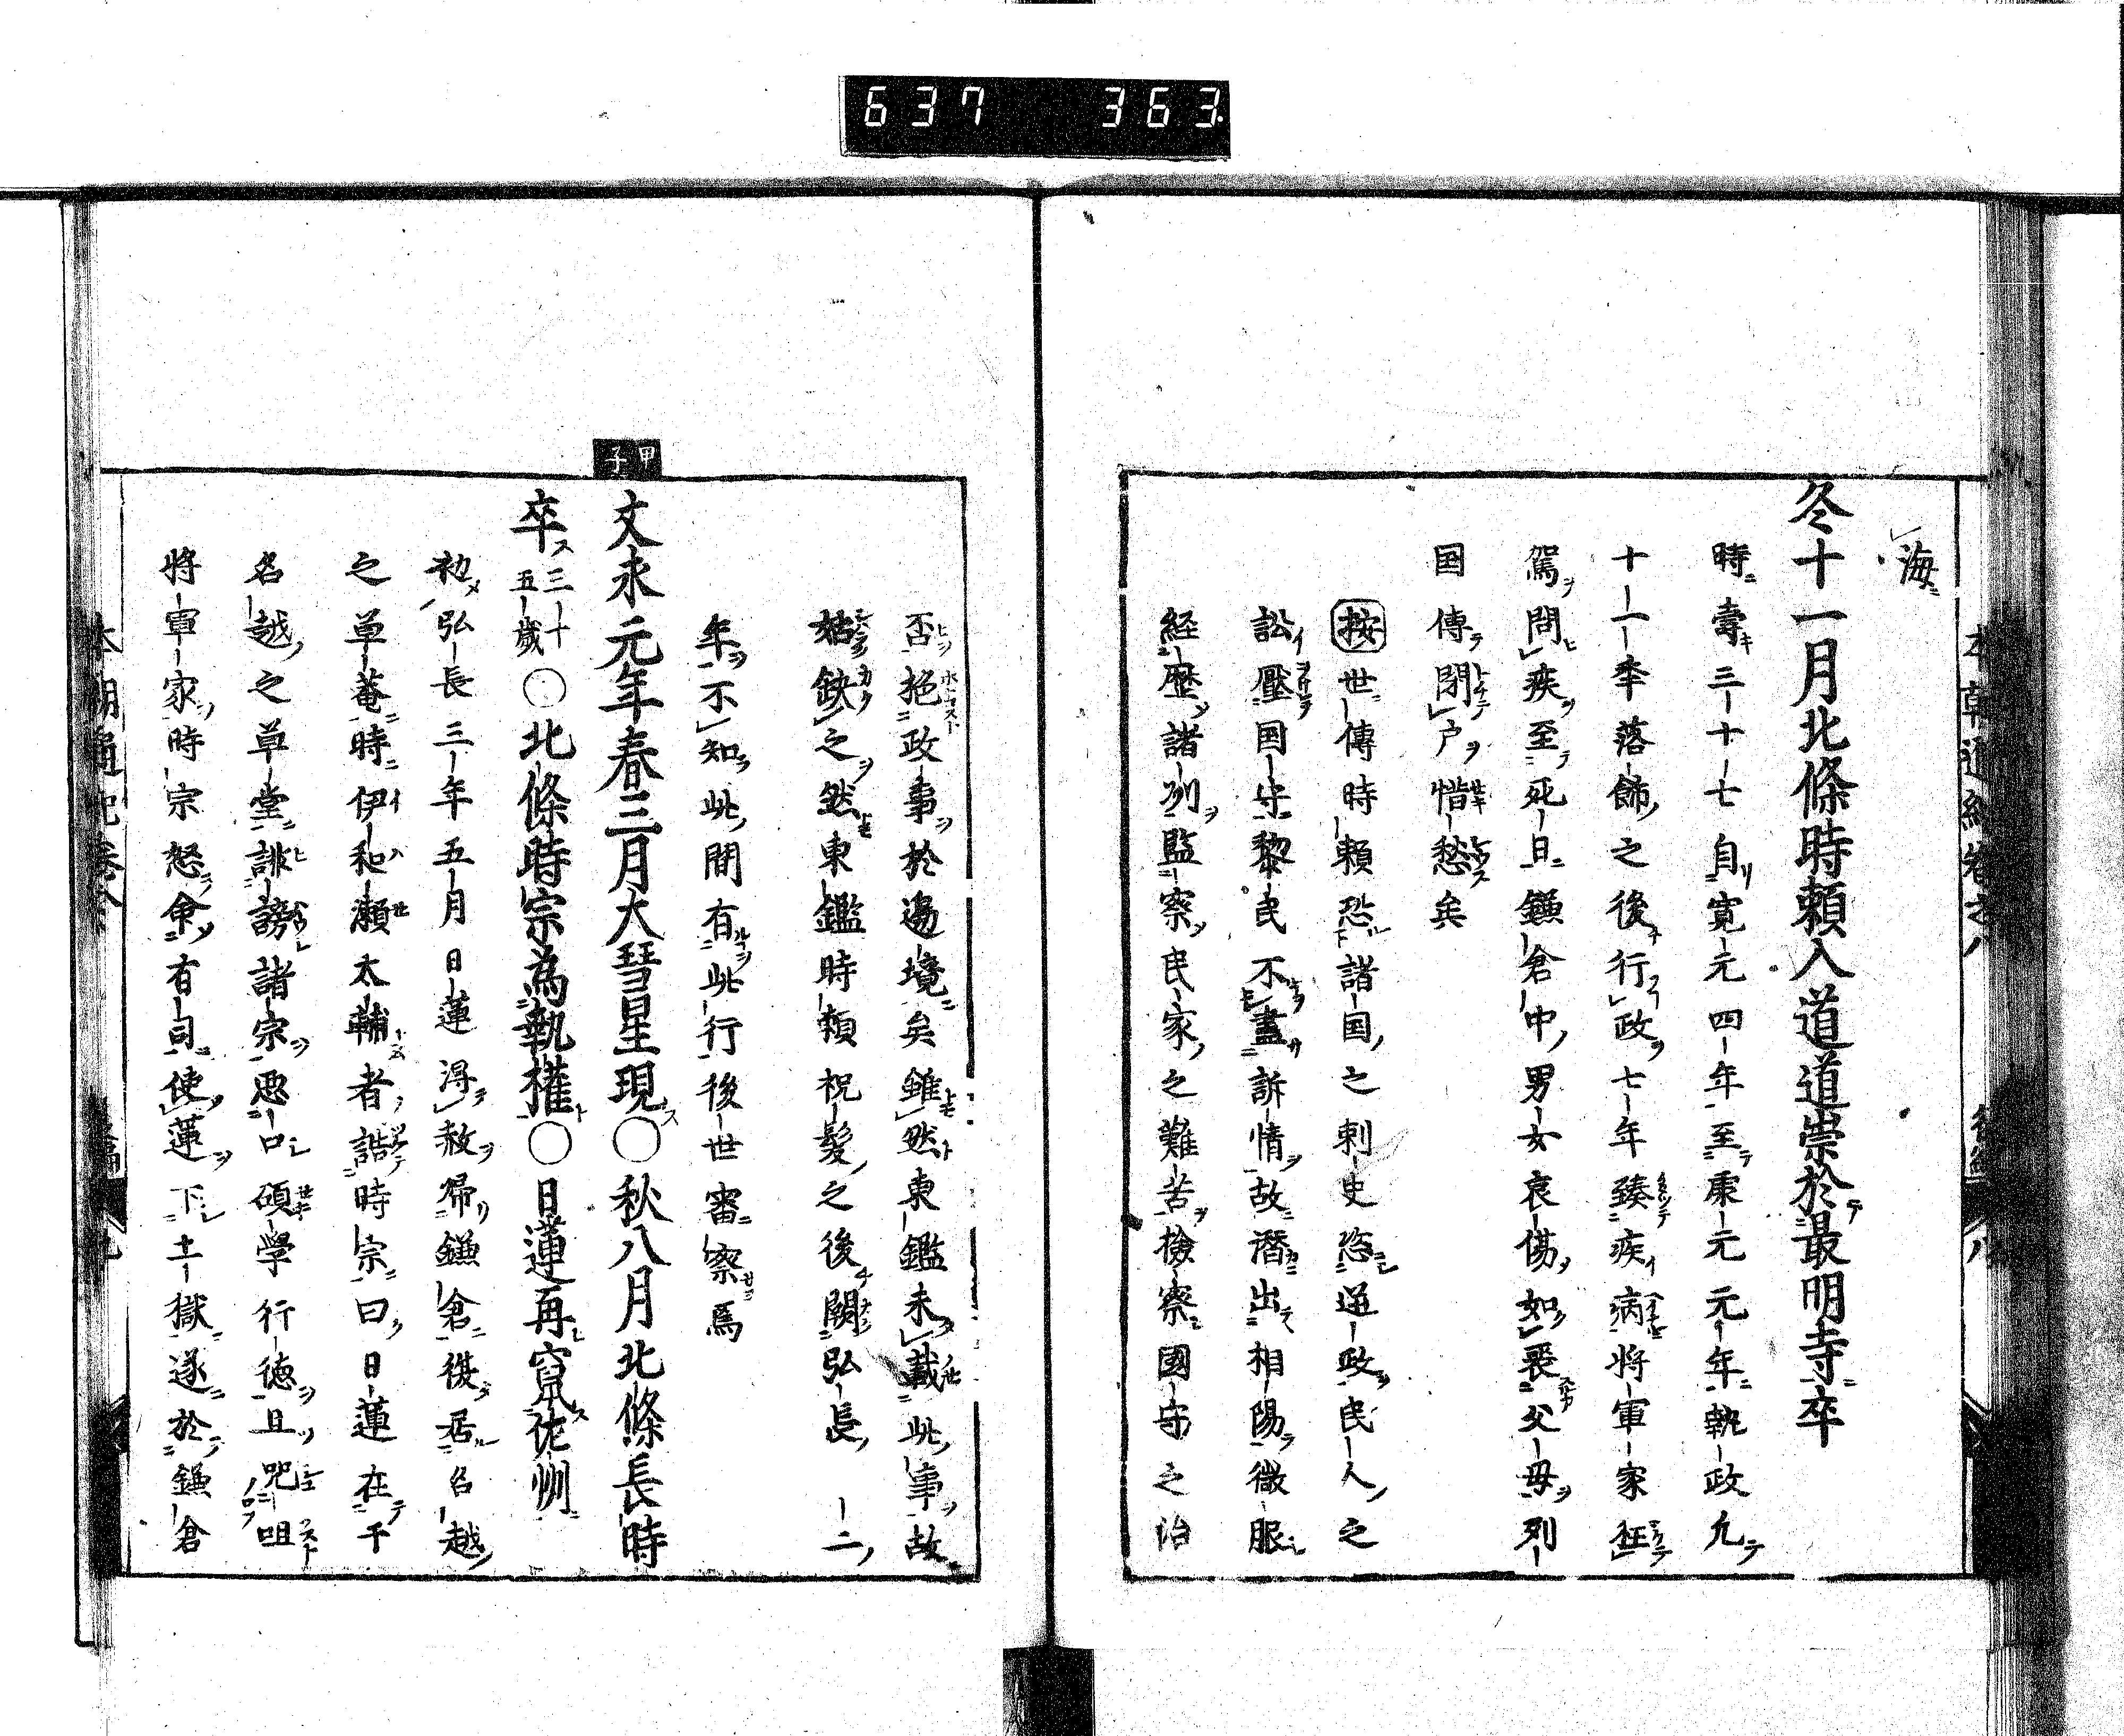 637 363
海
冬十一月北條時頼入道道崇於最明寺卒
時壽三十七自寛元四年至康元元年執政九
十一年落飾之後行政七年臻疾病將軍家枉
駕問疾至死日鎌倉中男女哀傷如喪父母列
国傳閉戸惜愁矣
按世傳時頼恐諸国之刺史恣逆政民人之
訟壓国守黎民不盡訴情故潛出相陽微服
経歴諸州監察民家之難苦撿察國守之治
否施政事於邊境矣雖然東鑑未載此事故
姑缺之然東鑑時頼祝髪之後闕弘長一二
年不知此間有此行後世審察焉
甲子
文永元年春三月大彗星現○秋八月北條長時
卒三十五歳○北條時宗為執權○日蓮再竄佐州
初弘長三年五月日蓮得赦帰鎌倉後居名越
之草菴時伊和瀬太輔者誥時宗曰日蓮在干
名越之草堂誹謗諸宗悪口碩學行徳且呪咀
將軍家時宗怒命有司使蓮下土獄遂於鎌倉